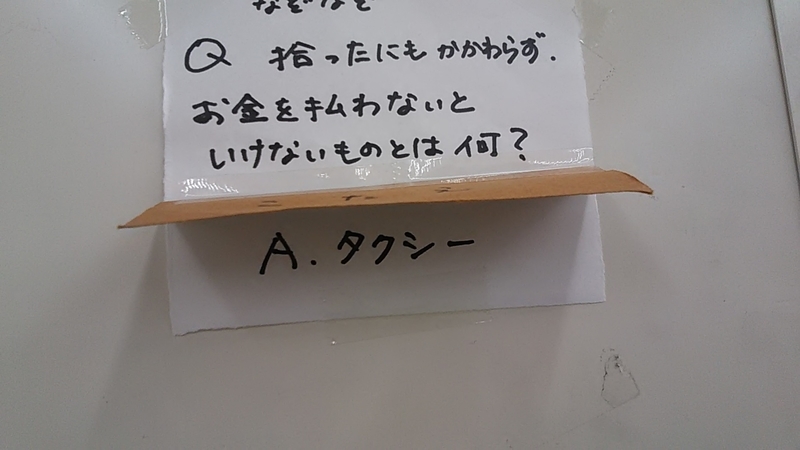 なぞなぞ
Q 拾ったにもかかわらず.
お金を払わないと
いけないものとは何?
こたえ
A. タクシー